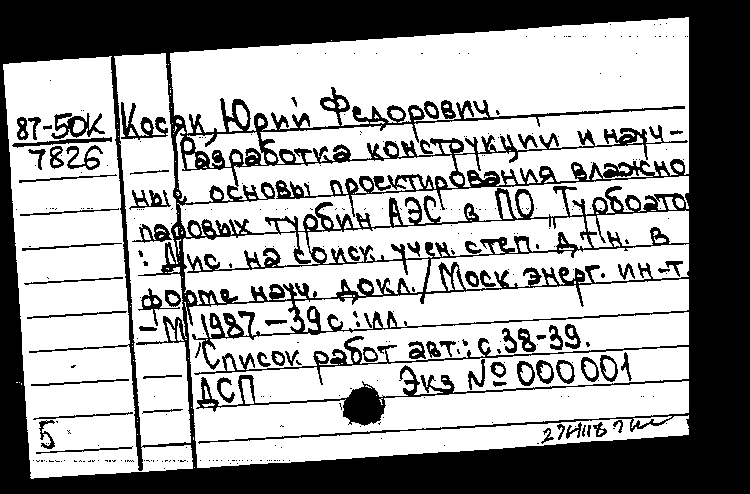 87-50К
7826
Косяк, Юрий Федорович.
Разработка конструкций и науч-
ные основы проектирования влажно
паровых турбин АЭС в ПО "Турбоато
: Дис. на соиск. учен. степ. д.т.н. в
форме науч. докл. / Моск. энерг. ин-т.
- М. 1987. - 39 с.: ил.
Список работ авт.: с. 38-39.
ДСП Экз № 000001
5